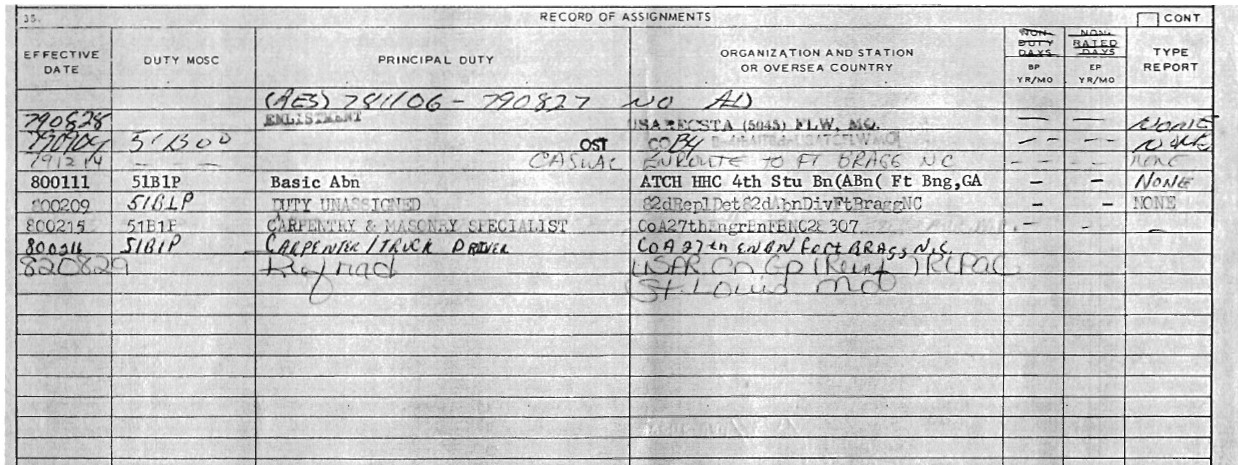 35. RECORD OF ASSIGNMENTS CONT
EFFECTIVE DATE DUTY MOSC PRINCIPAL DUTY ORGANIZATION AND STATION OR OVERSEA COUNTRY NON DUTY DAYS BP YR/MO NON RATED DAYS EP YR/MO TYPE REPORT
(RES) 781106 - 790827 NO AD
790828 ENLISTMENT USARECSTA (5045) FLW, MO. NONE
790904 51B00 OST CO B4 NONE
791214 - - - - CASUAL ENROUTE TO FT BRAGG NC - - NONE
800111 51B1P Basic Abn ATCH HHC 4th Stu Bn(ABn( Ft Bng,GA - - NONE
800209 51B1P DUTY UNASSIGNED 82dReplDet82dAbnDivFtBraggNC - - NONE
800215 51B1P CARPENTRY & MASONRY SPECIALIST CoA27thEngrBnFBNC28307 - - -
51B1P CARPENTER/TRUCK DRIVER CoA 27th ENBN Fort BRAGG, N.C.
820829 USAR Cn Gp (Reinf) RCPAC
St. Louis Mo